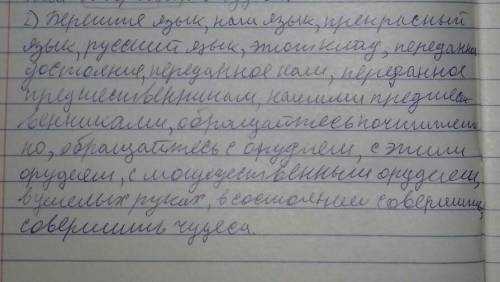 2) Берегите язык, наш язык, прекрасный
язык, русский язык, этот клад, переданное
достояние, переданное нам, переданное
предшественникам, нашими предшес
венниками, обращайтесь почтитель
но, обращайтесь с орудием, с этим
орудием, с могущественным орудием,
в умелых руках, в состоянии совершить,
совершить чудеса.